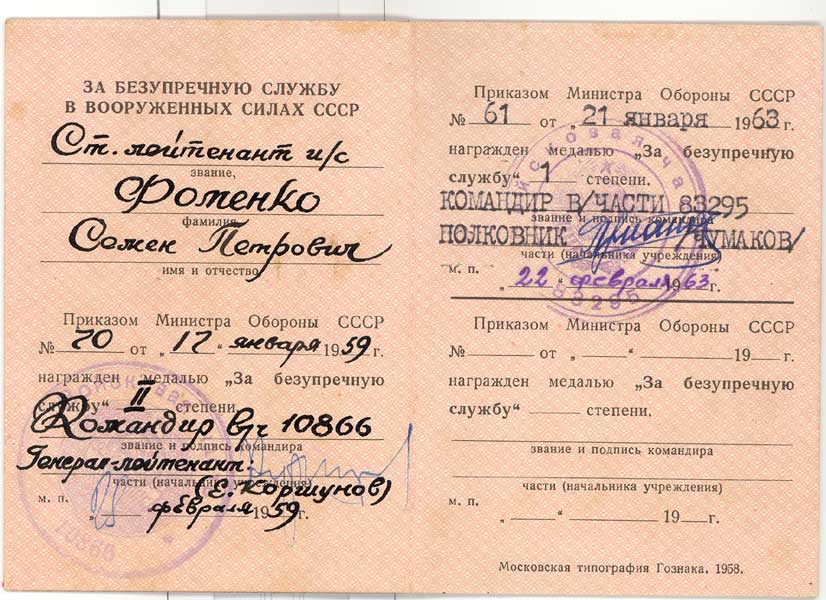 ЗА БЕЗУПРЕЧНУЮ СЛУЖБУ
В ВООРУЖЕННЫХ СИЛАХ СССР
Ст. лейтенант и/с
звание,
Фоменко
фамилия
Семен Петрович
имя и отчество
Приказом Министра Обороны СССР
№ 70 от „17“ января 1959 г.
награжден медалью „За безупречную
службу“ II степени.
Командир в/ч 10866
звание и подпись командира
Генерал-лейтенант
части (начальника учреждения)
(Е. Коршунов)
м. п. „ “ февраля 1959 г.
10866
Приказом Министра Обороны СССР
№ 61 от „21 января 1963 г.
награжден медалью „За безупречную
службу“ 1 степени.
КОМАНДИР В/ЧАСТИ 83295
звание и подпись командира
ПОЛКОВНИК /ЧУМАКОВ/
части (начальника учреждения)
м. п.
„22“ февраля 1963 г.
83295
Приказом Министра Обороны СССР
№ от „ “ 19 г.
награжден медалью „За безупречную
службу“ степени.
звание и подпись командира
части (начальника учреждения)
м. п.
„ “ 19 г.
Московская типография Гознака. 1958.